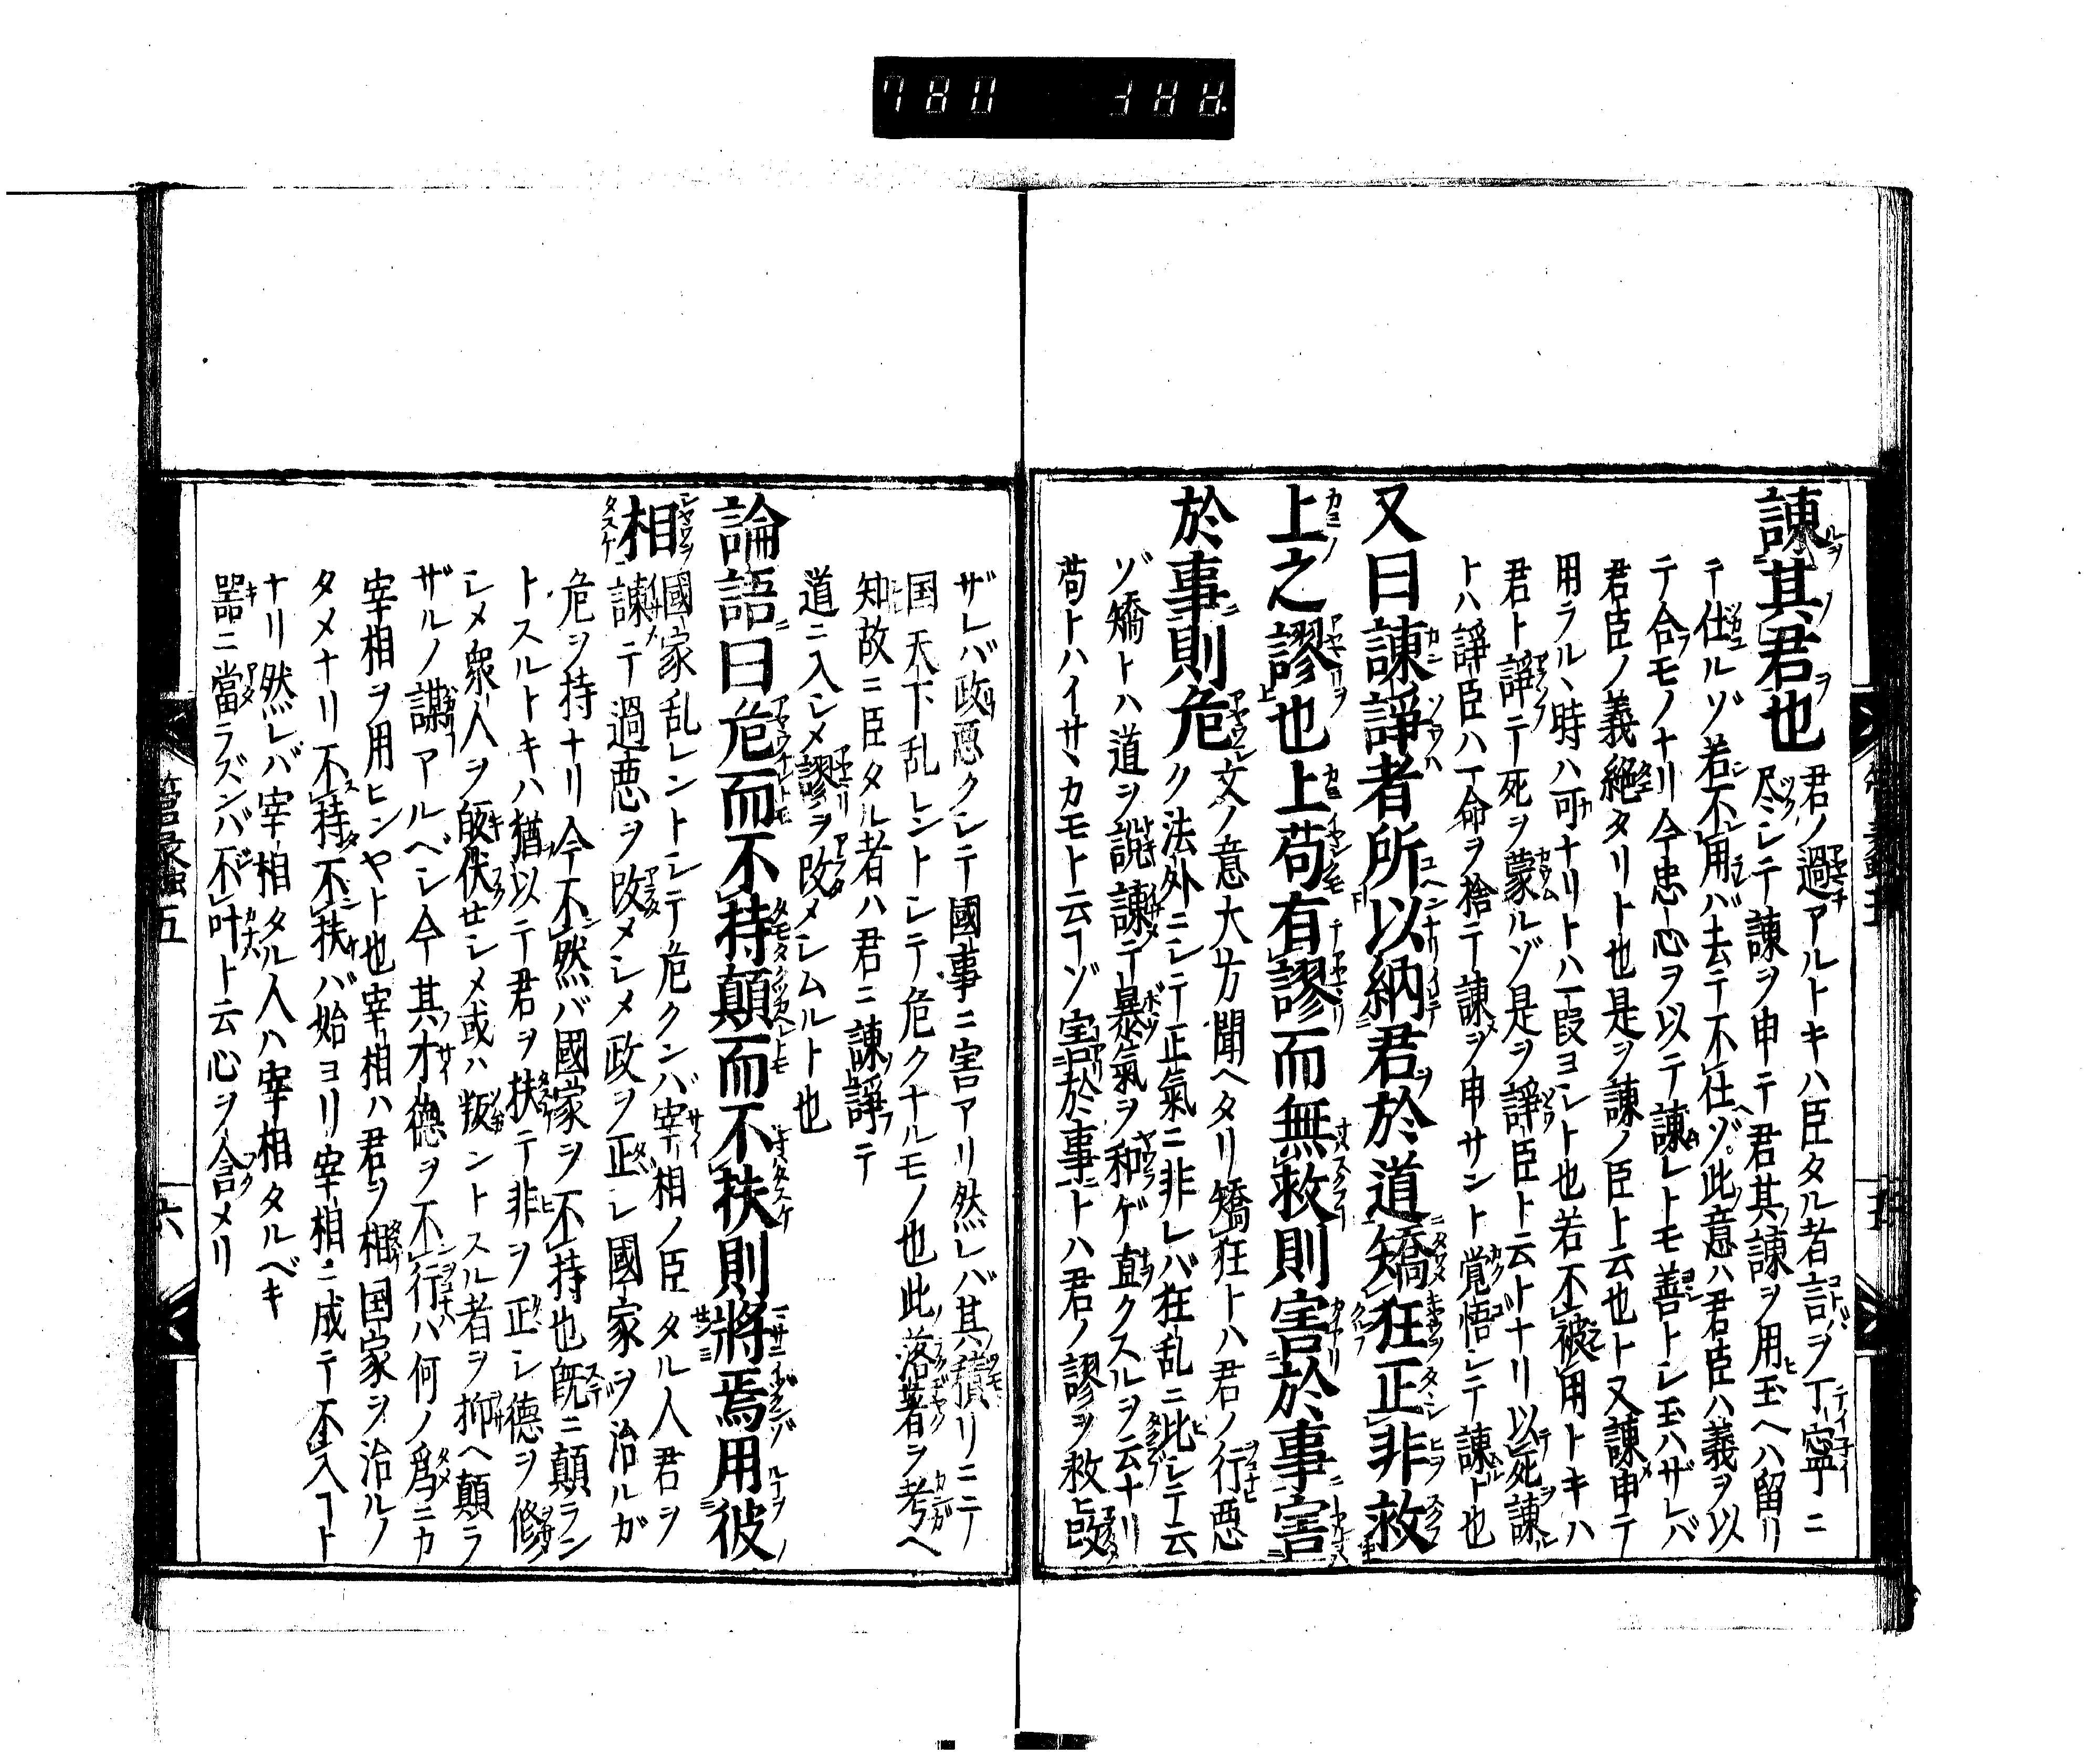 諫其君也
君ノ過アルトキハ臣タル者言ヲ丁寧ニ
尽シテ諫ヲ申テ君其諫ヲ用玉ヘハ留リ
テ仕ルゾ若不用バ去テ不仕ゾ此意ハ君臣ハ義ヲ以
テ合モノナリ今忠心ヲ以テ諫レトモ善トシ玉ハザレバ
君臣ノ義絶タリト也是ヲ諫ノ臣ト云也ト又諫申テ
用ラルヽ時ハ可ナリトハ一段ヨシト也若不被用トキハ
君ト諍テ死ヲ蒙ルゾ是ヲ諍臣ト云トナリ以死諫ル
トハ諍臣ハ一命ヲ捨テ諫ヲ申サント覚悟シテ諫ト也
又曰諫諍者所以納君於道矯狂正非救
上之謬也上苟有謬而無救則害於事害
於事則危
文ノ意大方聞ヘタリ矯狂トハ君ノ行悪
ク法外ニシテ正氣ニ非レバ狂乱ニ比シテ云
ゾ矯トハ道ヲ説諫テ暴氣ヲ和ゲ直クスルヲ云ナリ
苟トハイサヽカモト云ヿゾ害於事トハ君ノ謬ヲ救ヒ改
ザレバ政悪クシテ國事ニ害アリ然レバ其積リニテ
国天下乱レントシテ危クナルモノ也此落著ヲ考ヘ
知故ニ臣タル者ハ君ニ諫諍テ
道ニ入シメ謬ヲ改メシムルト也
論語曰危而不持顛而不扶則將焉用彼
相
國家乱レントシテ危クンバ宰相ノ臣タル人君ヲ
諫テ過悪ヲ改メシメ政ヲ正シ國家ヲ治ルガ
危ヲ持ナリ今不然バ國家ヲ不持也既ニ顛ラン
トスルトキハ猶以テ君ヲ扶テ非ヲ正シ德ヲ修
シメ衆人ヲ皈伏せシメ或ハ叛ントスル者ヲ抑ヘ顛ラ
ザルノ謀アルベシ今其才德ヲ不行ハ何ノ爲ニカ
宰相ヲ用ヒンヤト也宰相ハ君ヲ相国家ヲ治ルノ
タメナリ不持不扶バ始ヨリ宰相ニ成テ不入ヿト
ナリ然レバ宰相タル人ハ宰相タルベキ
器ニ當ラズンバ不叶ト云心ヲ含メリ